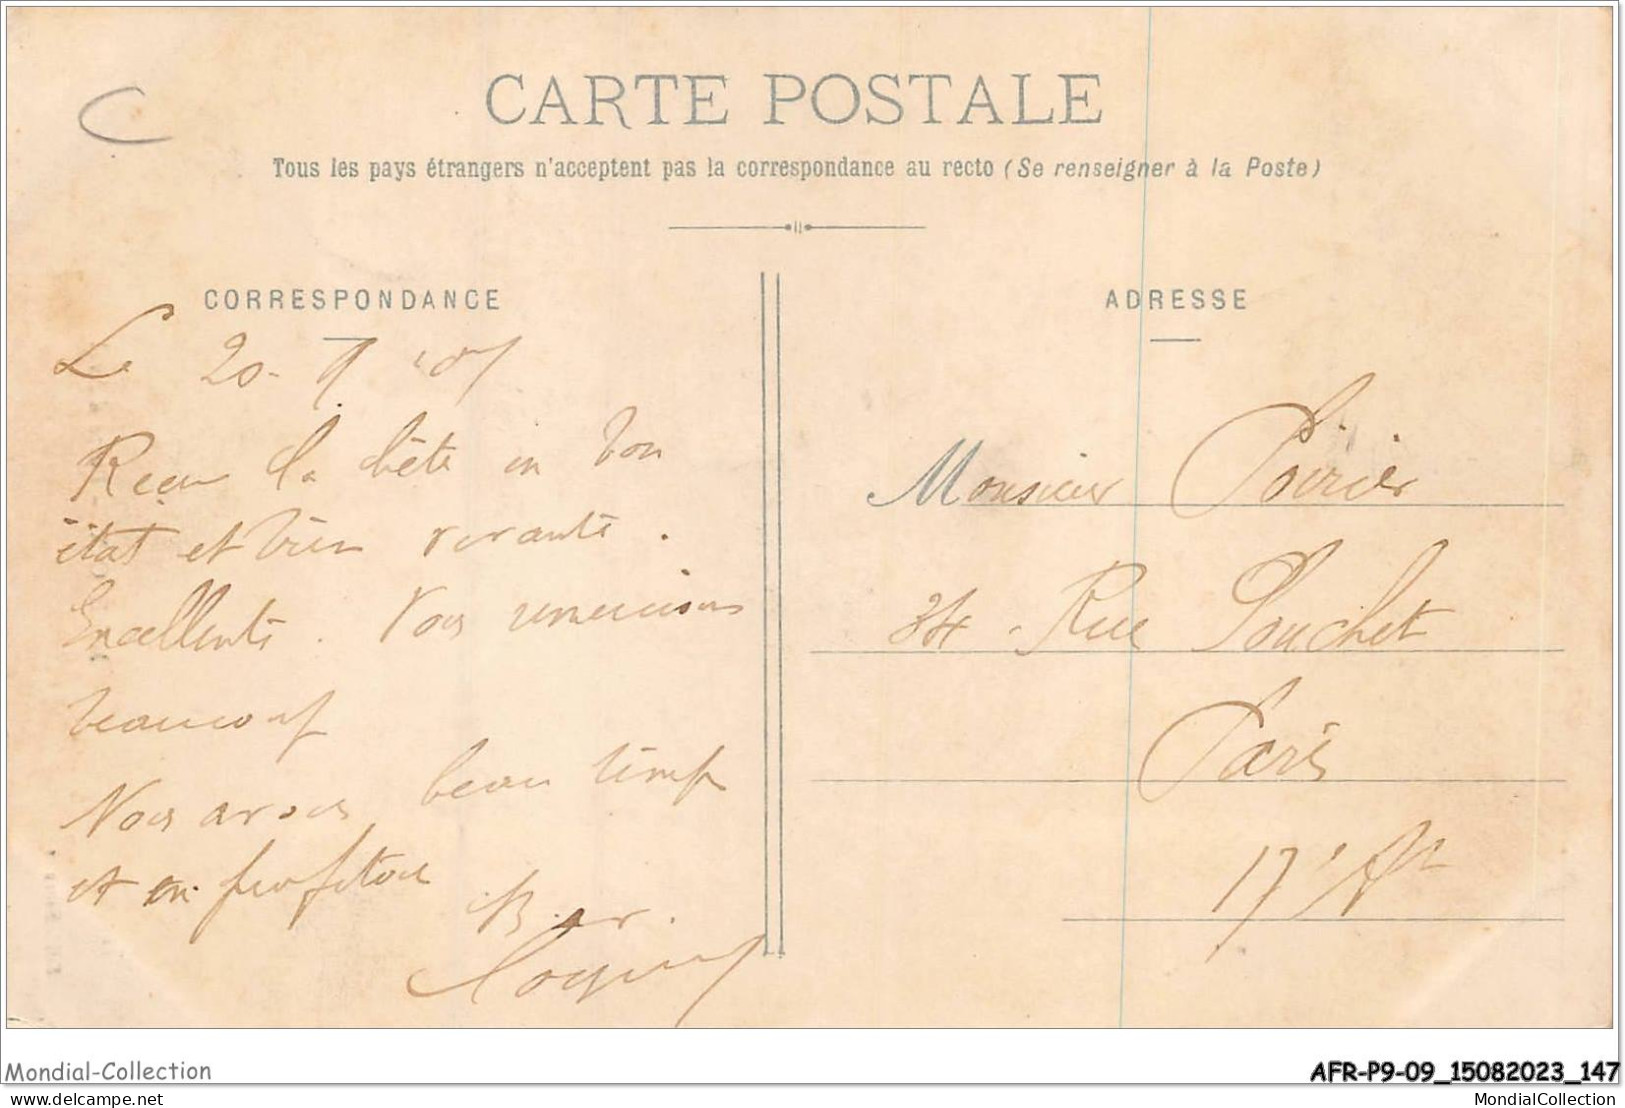 CARTE POSTALE
Tous les pays étrangers n'acceptent pas la correspondance au recto (Se renseigner à la Poste)
CORRESPONDANCE
ADRESSE
Le 20-9
Reçu la bête en bon
état et bien vivante.
Excellente. Vous remercions
beaucoup
Nous avons beau temps
et en profitons
Monsieur Poirier
34 Rue Pouchet
Paris
17e Arr
Mondial-Collection
AFR-P9-09_15082023_147
delcampe.net
MondialCollection